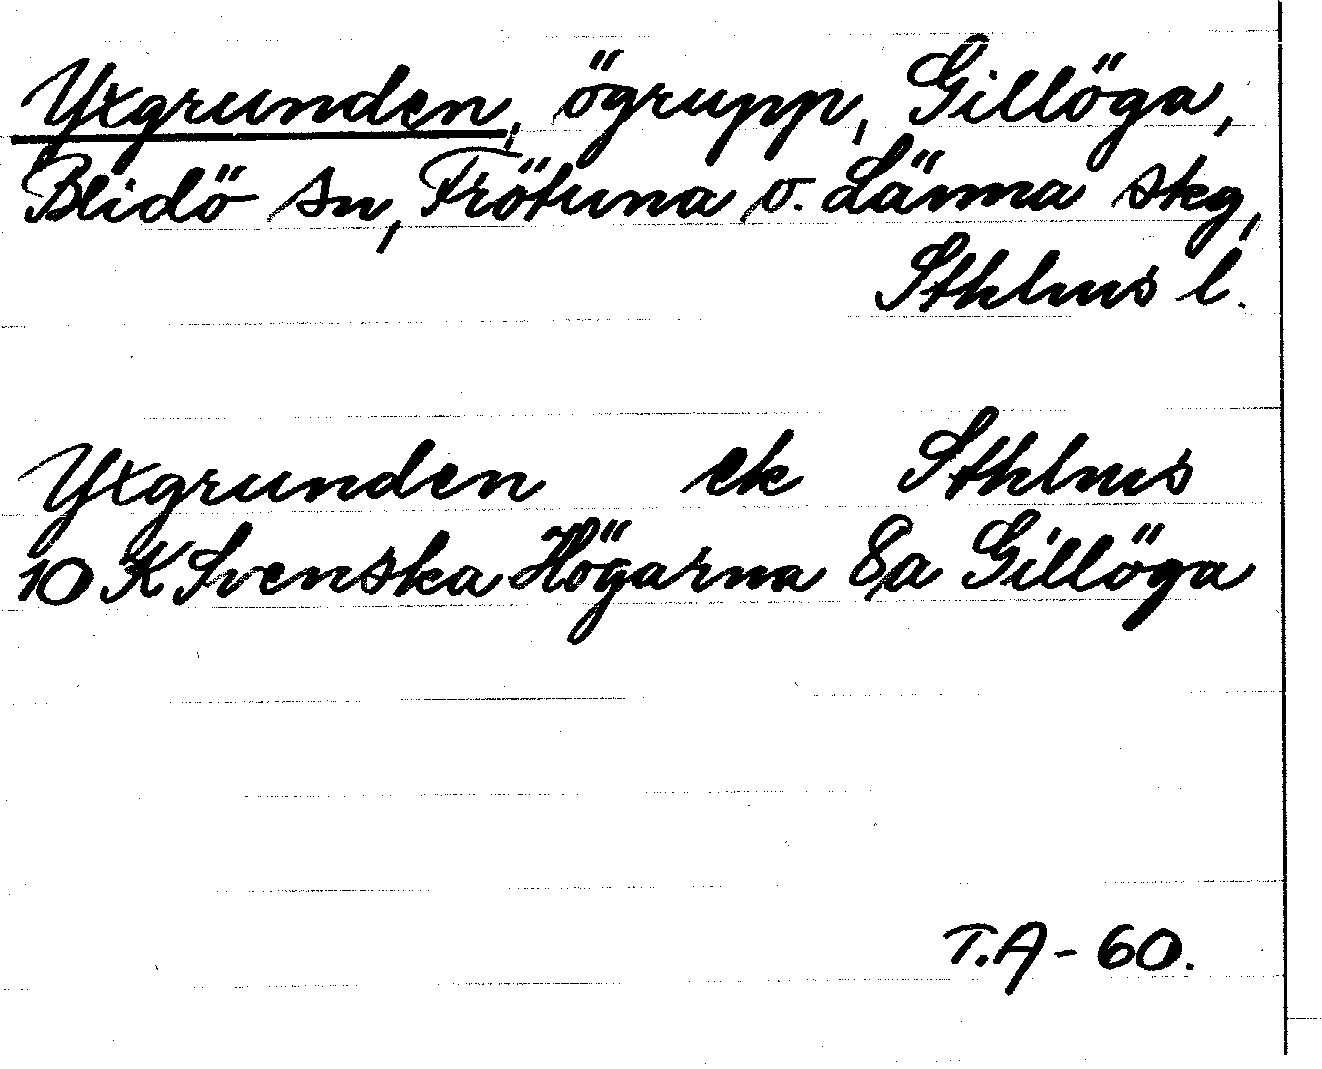 Yxgrunden, ögrupp, Gillöga,
Blidö sn, Frötuna o. Länna skg,
Sthlms l.
Yxgrunden ek Sthlms
10 K Svenska Högarna 8a Gillöga
T.A - 60.